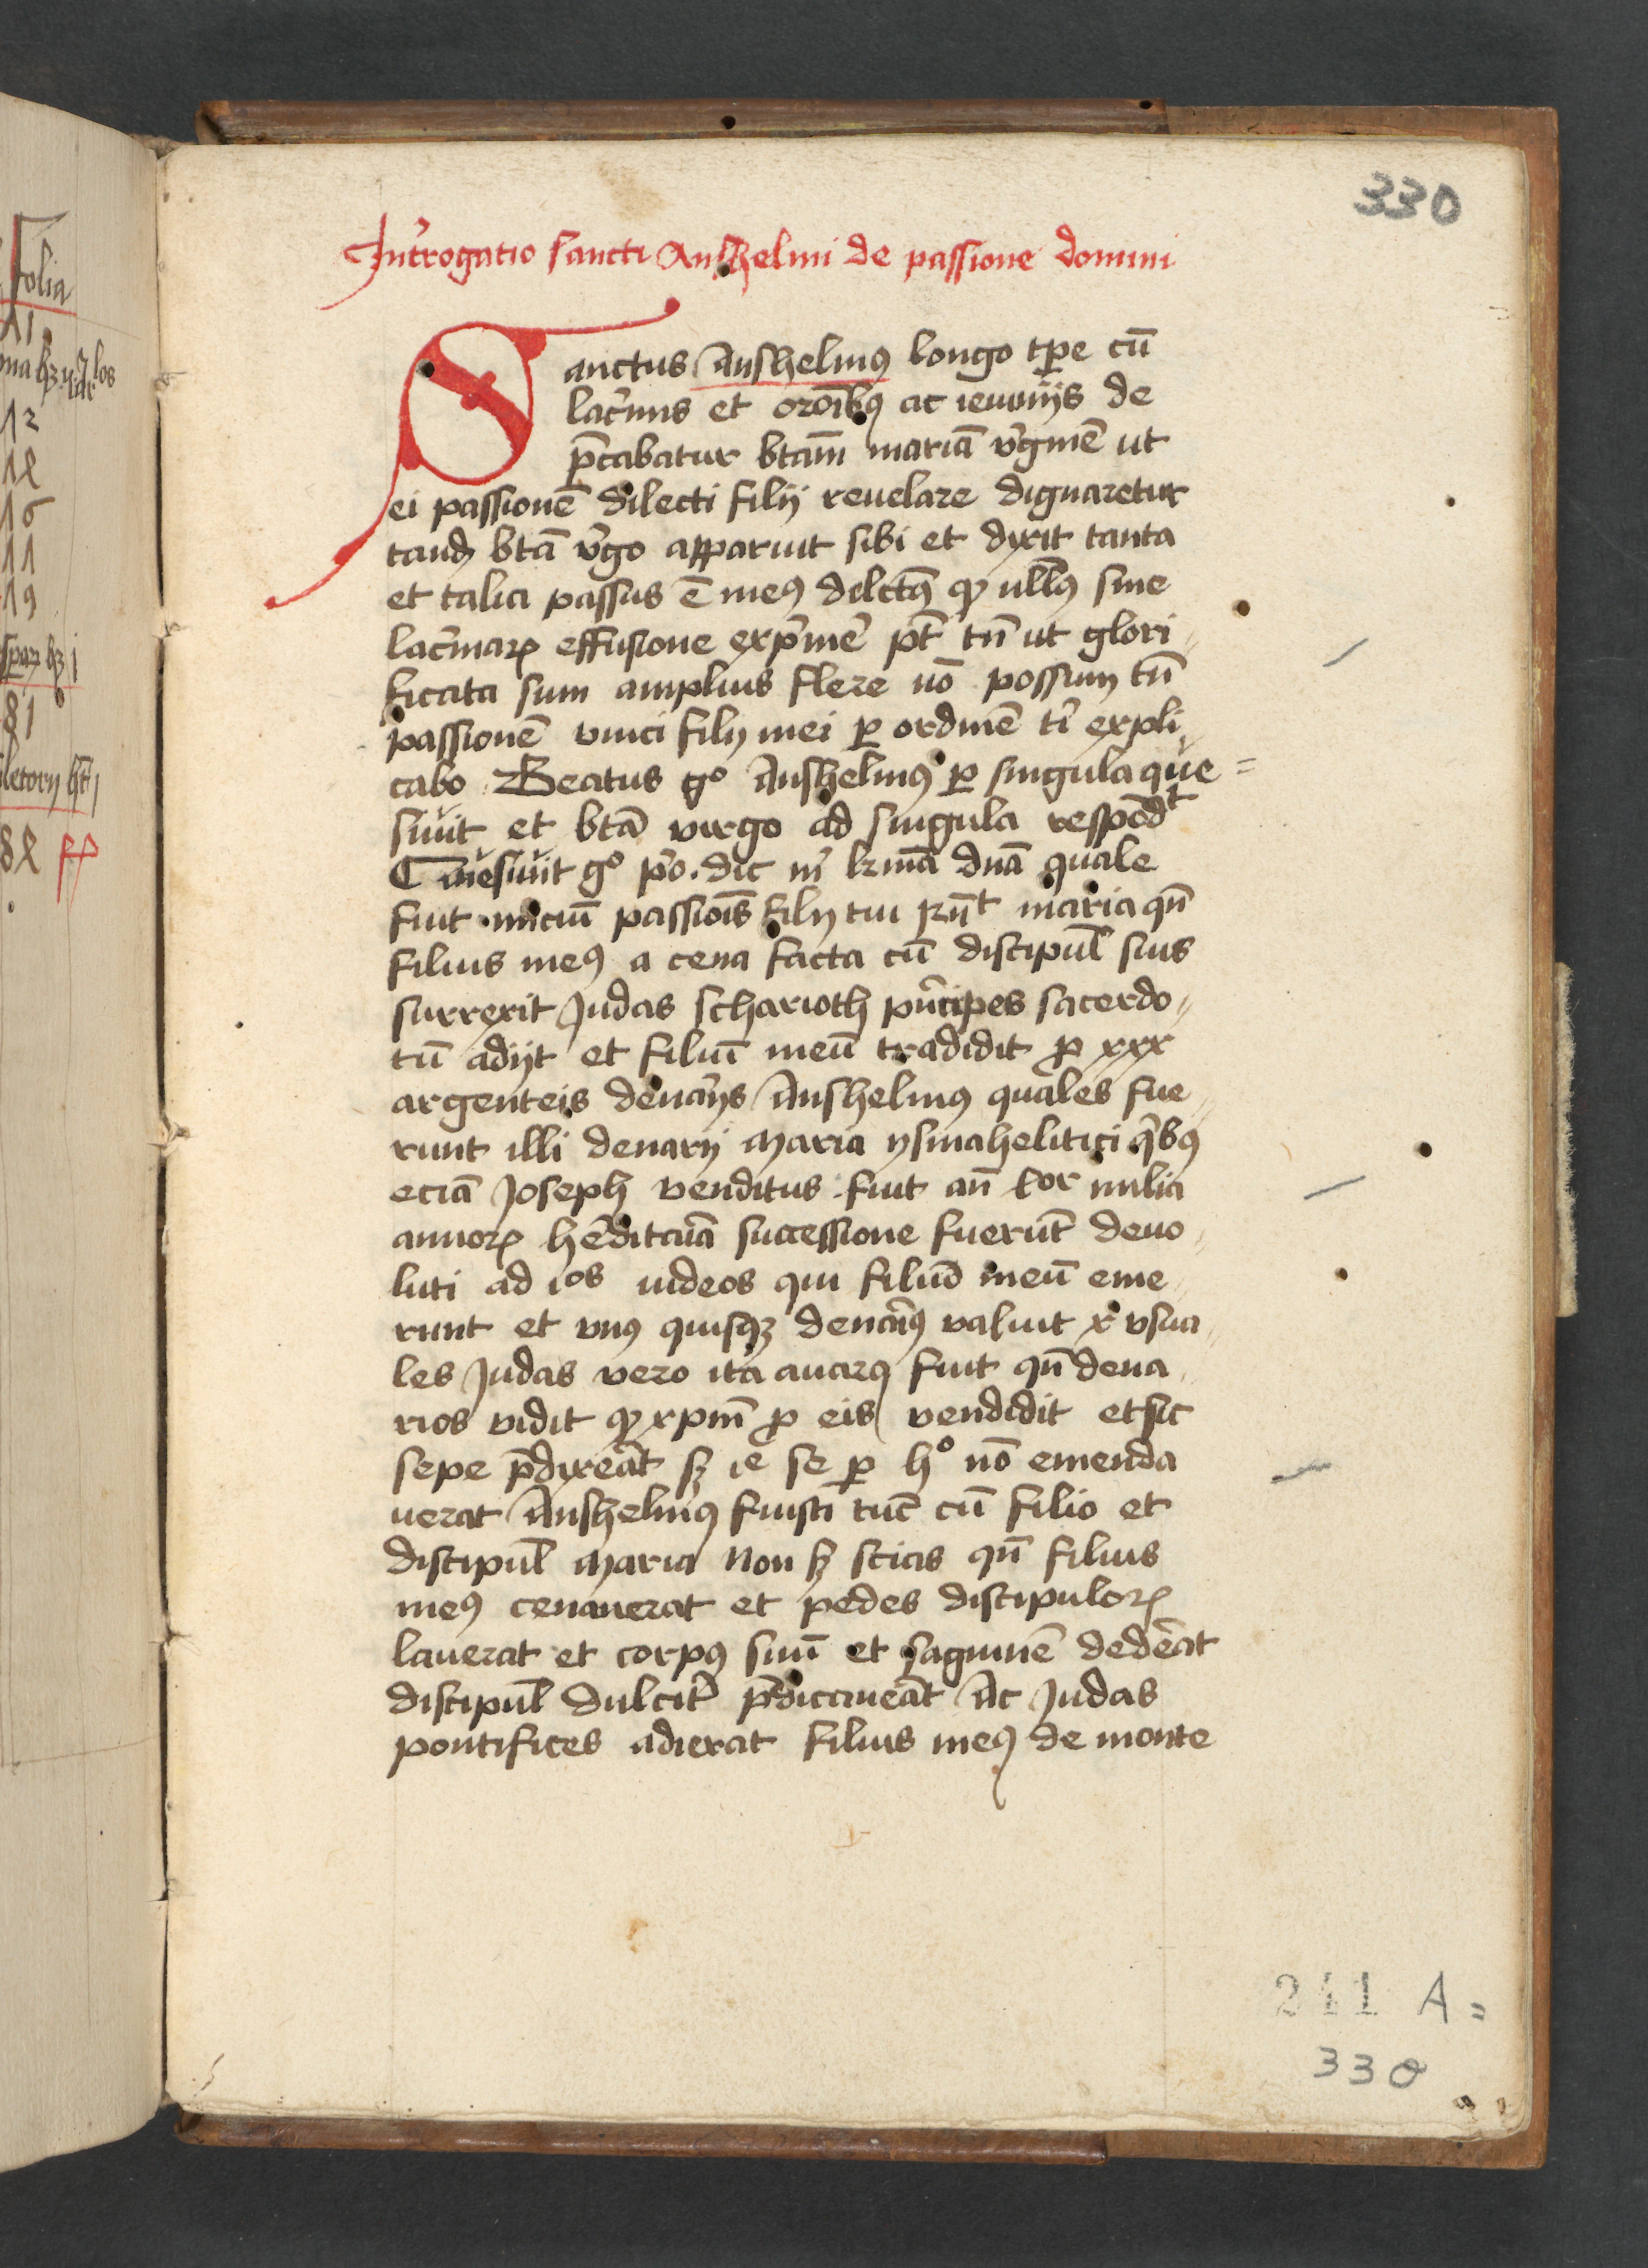 330
Int̉rogatio sancti Anshelmi de passione domini
Sanctus Anshelmꝰ longo tp̲e cū
lac̉mis et or̄oībꝰ ac ieiunijs de
p̄cabatur btām mariā v̉gīnē ut
ei passionē dilecti filij reuelare dignaretur
tandꝫ btā v̉go apparuit sibi et dixit tanta
et talia passus ē meꝰ dilctꝰ ꝙ nllꝰ sine
lac̉maꝝ effusione exp̉me̓ pt̄ tn̄ ut glori
ficata sum amplius flere nō possum tn̄
passionē vnici filij mei ꝑ ordinē ti̓ expli
cabo Beatus gͦ Anshelmꝰ ꝑ singula que
siuit et btā virgo ad singula respōdt
Quesiuit gͦ pͦ. dic m̓ kr̄mā dn̄a quale
fuit iniciū passiōis filij tui Rn̄t maria qn̄
filius meꝰ a cena facta cū discipul̄ suis
surrexit Judas scharioth pn̓cipes sacerdo
tū adijt et filiū meū tradidit ꝓ xxx
argenteis dena̓ijs Anshelmꝰ quales fue
runt illi denarij Maria ysmahelitici qͥbꝰ
eciā Joseph venditus fuit an̄ ior milia
annoꝝ he̓dita̓ia successione fuerūt deuo
luti ad ios iudeos qui filiū meū eme
runt et vnꝰ quisqꝫ dena̓iꝰ valuit x vsua
les Judas vero ita auarꝰ fuit qn̄ dena
rios vidit ꝙ xp̄m ꝓ eis vendidit et sic
sepe p̄dixeāt sꝫ ie se ꝑ hͦ nō emenda
uerat Anshelmꝰ fuisti tūc cū filio et
discipul̄ Maria Non sꝫ scias qn̄ filius
meꝰ cenauerat et pedes discipuloꝝ
lauerat et corpꝰ suū et sagwinē dede̓at
discipul̄ dulcit̓ p̄dicaue̓at Ac Judas
pontifices adierat filius meꝰ de monte
241 A =
330